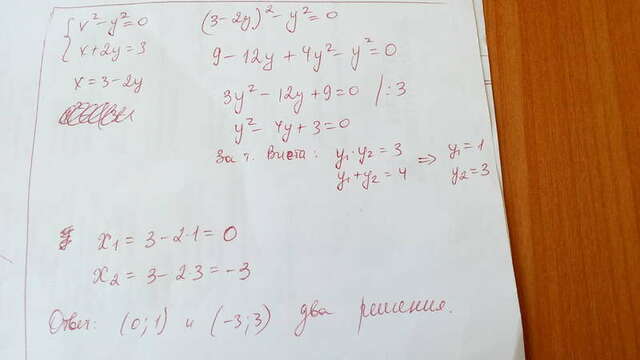 x² - y² = 0
x + 2y = 3
x = 3 - 2y
(3 - 2y)² - y² = 0
9 - 12y + 4y² - y² = 0
3y² - 12y + 9 = 0 /:3
y² - 4y + 3 = 0
За т. Виета: y₁·y₂ = 3 => y₁ = 1
y₁ + y₂ = 4 y₂ = 3
x₁ = 3 - 2·1 = 0
x₂ = 3 - 2·3 = -3
Ответ: (0; 1) и (-3; 3) два решения.